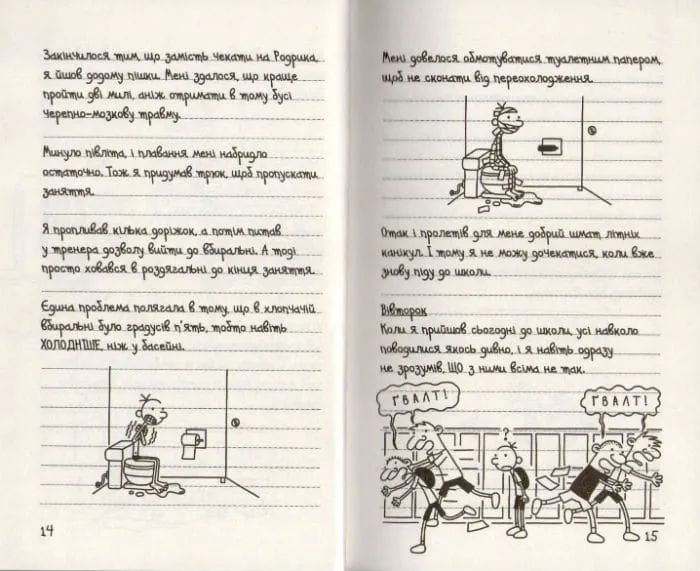 Закінчилося тим, що замість чекати на Родрика,
я йшов додому пішки. Мені здалося, що краще
пройти дві милі, аніж отримати в тому бусі
черепно-мозкову травму.
Минуло півліта, і плавання мені набридло
остаточно. Тож я придумав трюк, щоб пропускати
заняття.
Я пропливав кілька доріжок, а потім питав
у тренера дозволу вийти до вбиральні. А тоді
просто ховався в роздягальні до кінця заняття.
Єдина проблема полягала в тому, що в хлопчачій
вбиральні було градусів п'ять, тобто навіть
ХОЛОДНІШЕ, ніж у басейні.
14
Мені довелося обмотуватися туалетним папером,
щоб не сконати від переохолодження.
Отак і пролетів для мене добрий шмат літніх
канікул. І тому я не можу дочекатися, коли вже
знову піду до школи.
Вівторок
Коли я прийшов сьогодні до школи, усі навколо
поводилися якось дивно, і я навіть одразу
не зрозумів, ЩО з ними всіма не так.
ҐВАЛТ!
ҐВАЛТ!
?
15